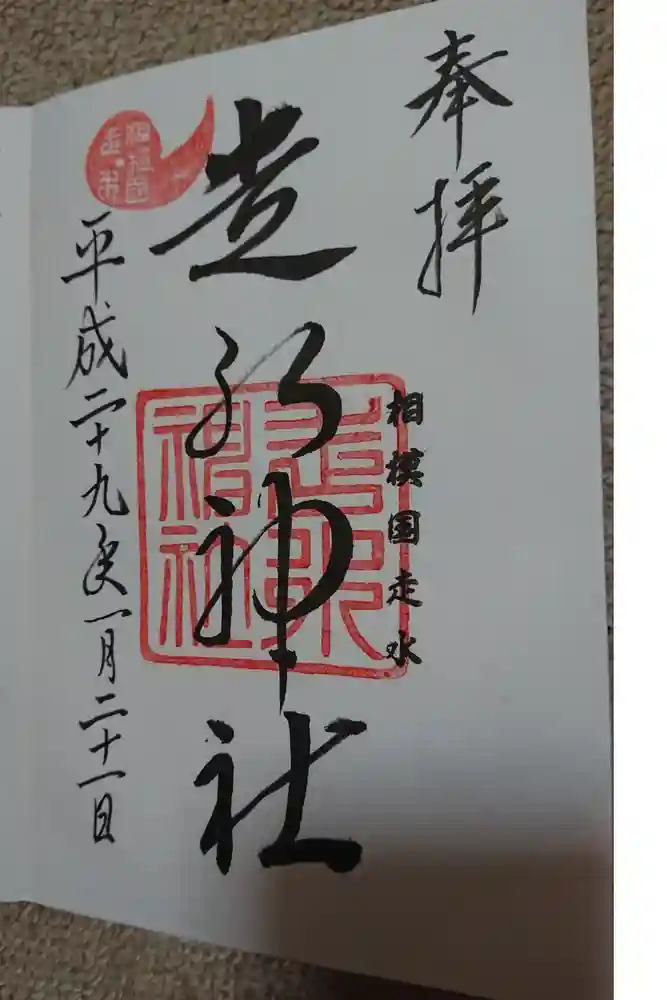 奉拝
相模国走水
走水神社
走水神社
平成二十九年一月二十一日
相模国走水